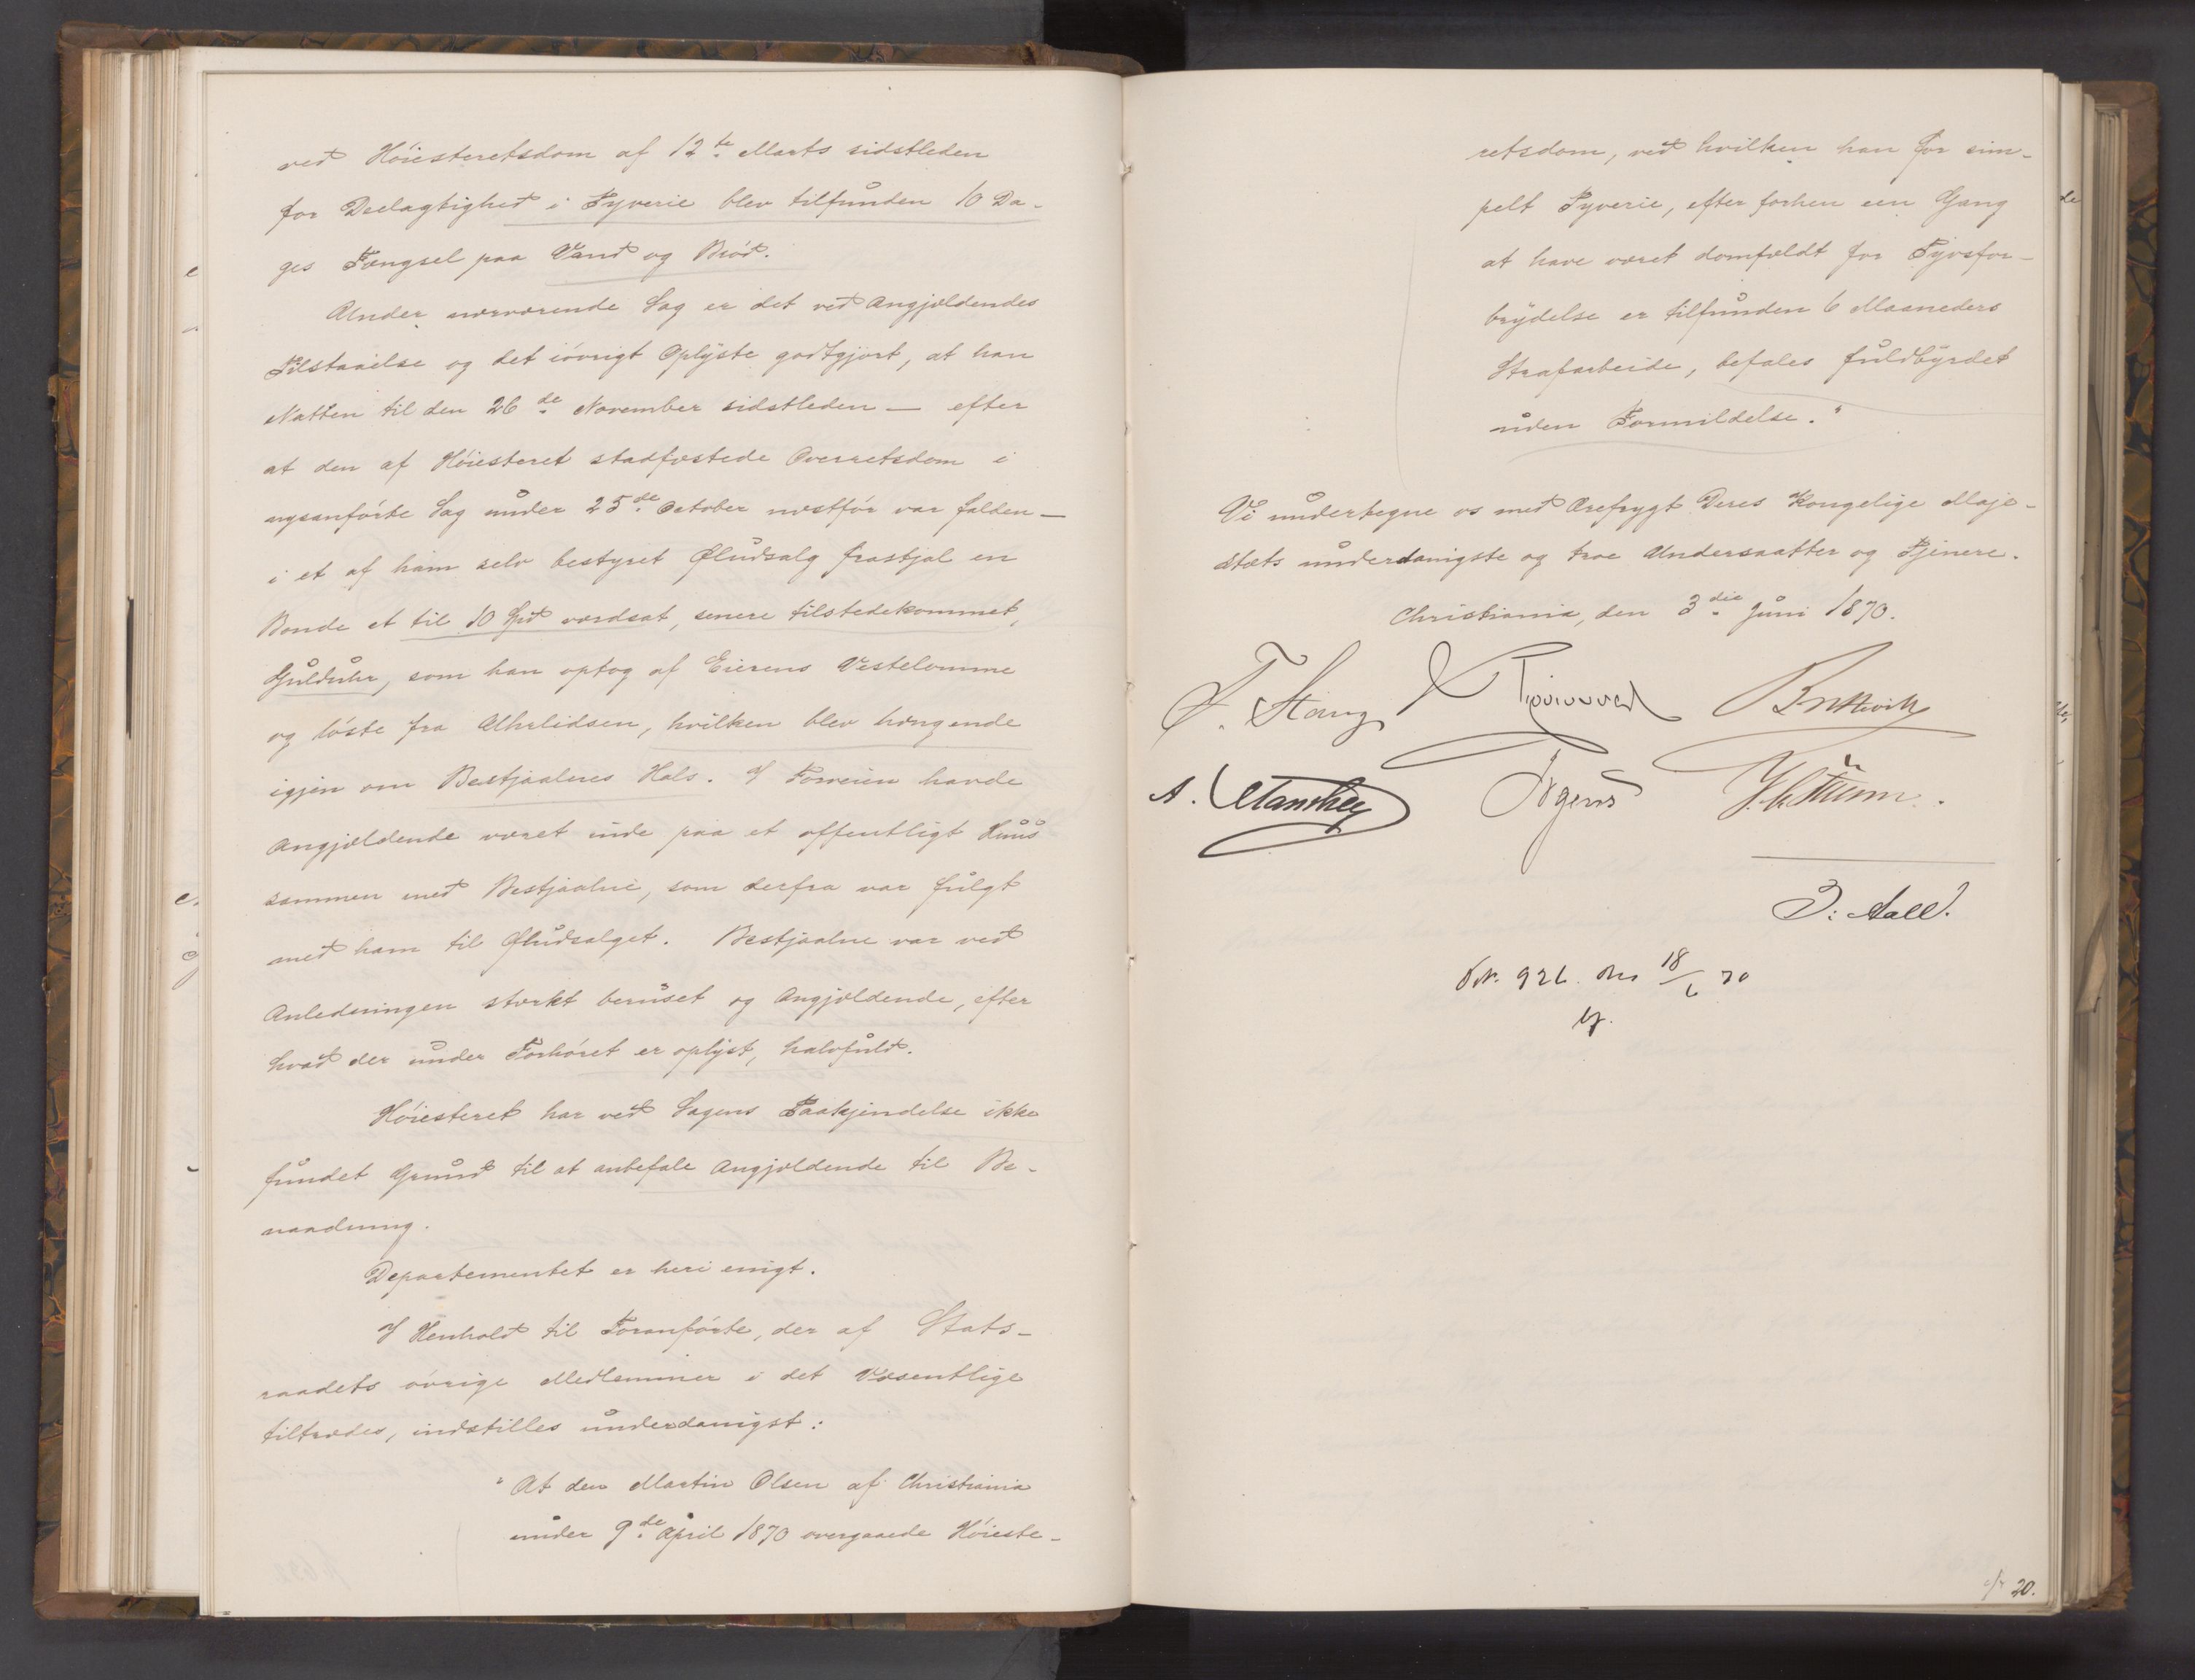 ved Høiesteretsdom af 12te Marts sidstleden
for Deelagtighed i Tyverie blev tilfunden 10 Da-
ges Fængsel paa Vand og Brød.
Under nærværende Sag er det ved Angjældendes
Tilstaaelse og det iøvrigt Oplyste godtgjort, at han
Natten til den 26de November sidstleden — efter
at den af Høiesteret stadfæstede Overretsdom i
nysanførte Sag under 25de October næstfør var falden —
i et af ham selv bestyret Øludsalg frastjal en
Bonde et til 10 Spd værdsat, senere tilstedekommet,
Gulduhr, som han optog af Eierens Vestelomme
og løste fra Uhrlidsen, hvilken blev hængende
igjen om Bestjaalnes Hals. I Forveien havde
Angjældende været inde paa et offentligt Huus
sammen med Bestjaalne, som derfra var fulgt
med ham til Øludsalget. Bestjaalne var ved
Anledningen stærkt beruset og Angjældende, efter
hvad der under Forhøret er oplyst, halvfuld.
Høiesteret har ved Sagens Paakjendelse ikke
fundet Grund til at anbefale Angjældende til Be-
naadning.
Departementet er heri enigt.
I Henhold til Foranførte, der af Stats-
raadets øvrige Medlemmer i det Væsentlige
tiltrædes, indstilles underdanigst:
"At den Martin Olsen af Christiania
under 9de April 1870 overgaaede Høieste-
retsdom, ved hvilken han for sim-
pelt Tyverie, efter forhen een Gang
at have været domfældt for Tyvsfor-
brydelse er tilfunden 6 Maaneders
Strafarbeide, befales fuldbyrdet
uden Formildelse."
Vi undertegne os med Ærefrygt Deres Kongelige Maje-
stæts underdanigste og troe Undersaatter og Tjenere.
Christiania, den 3die Juni 1870.
F. Stang
A. Manthey Irgens
J. Aall.
926. 18/6 70
20.